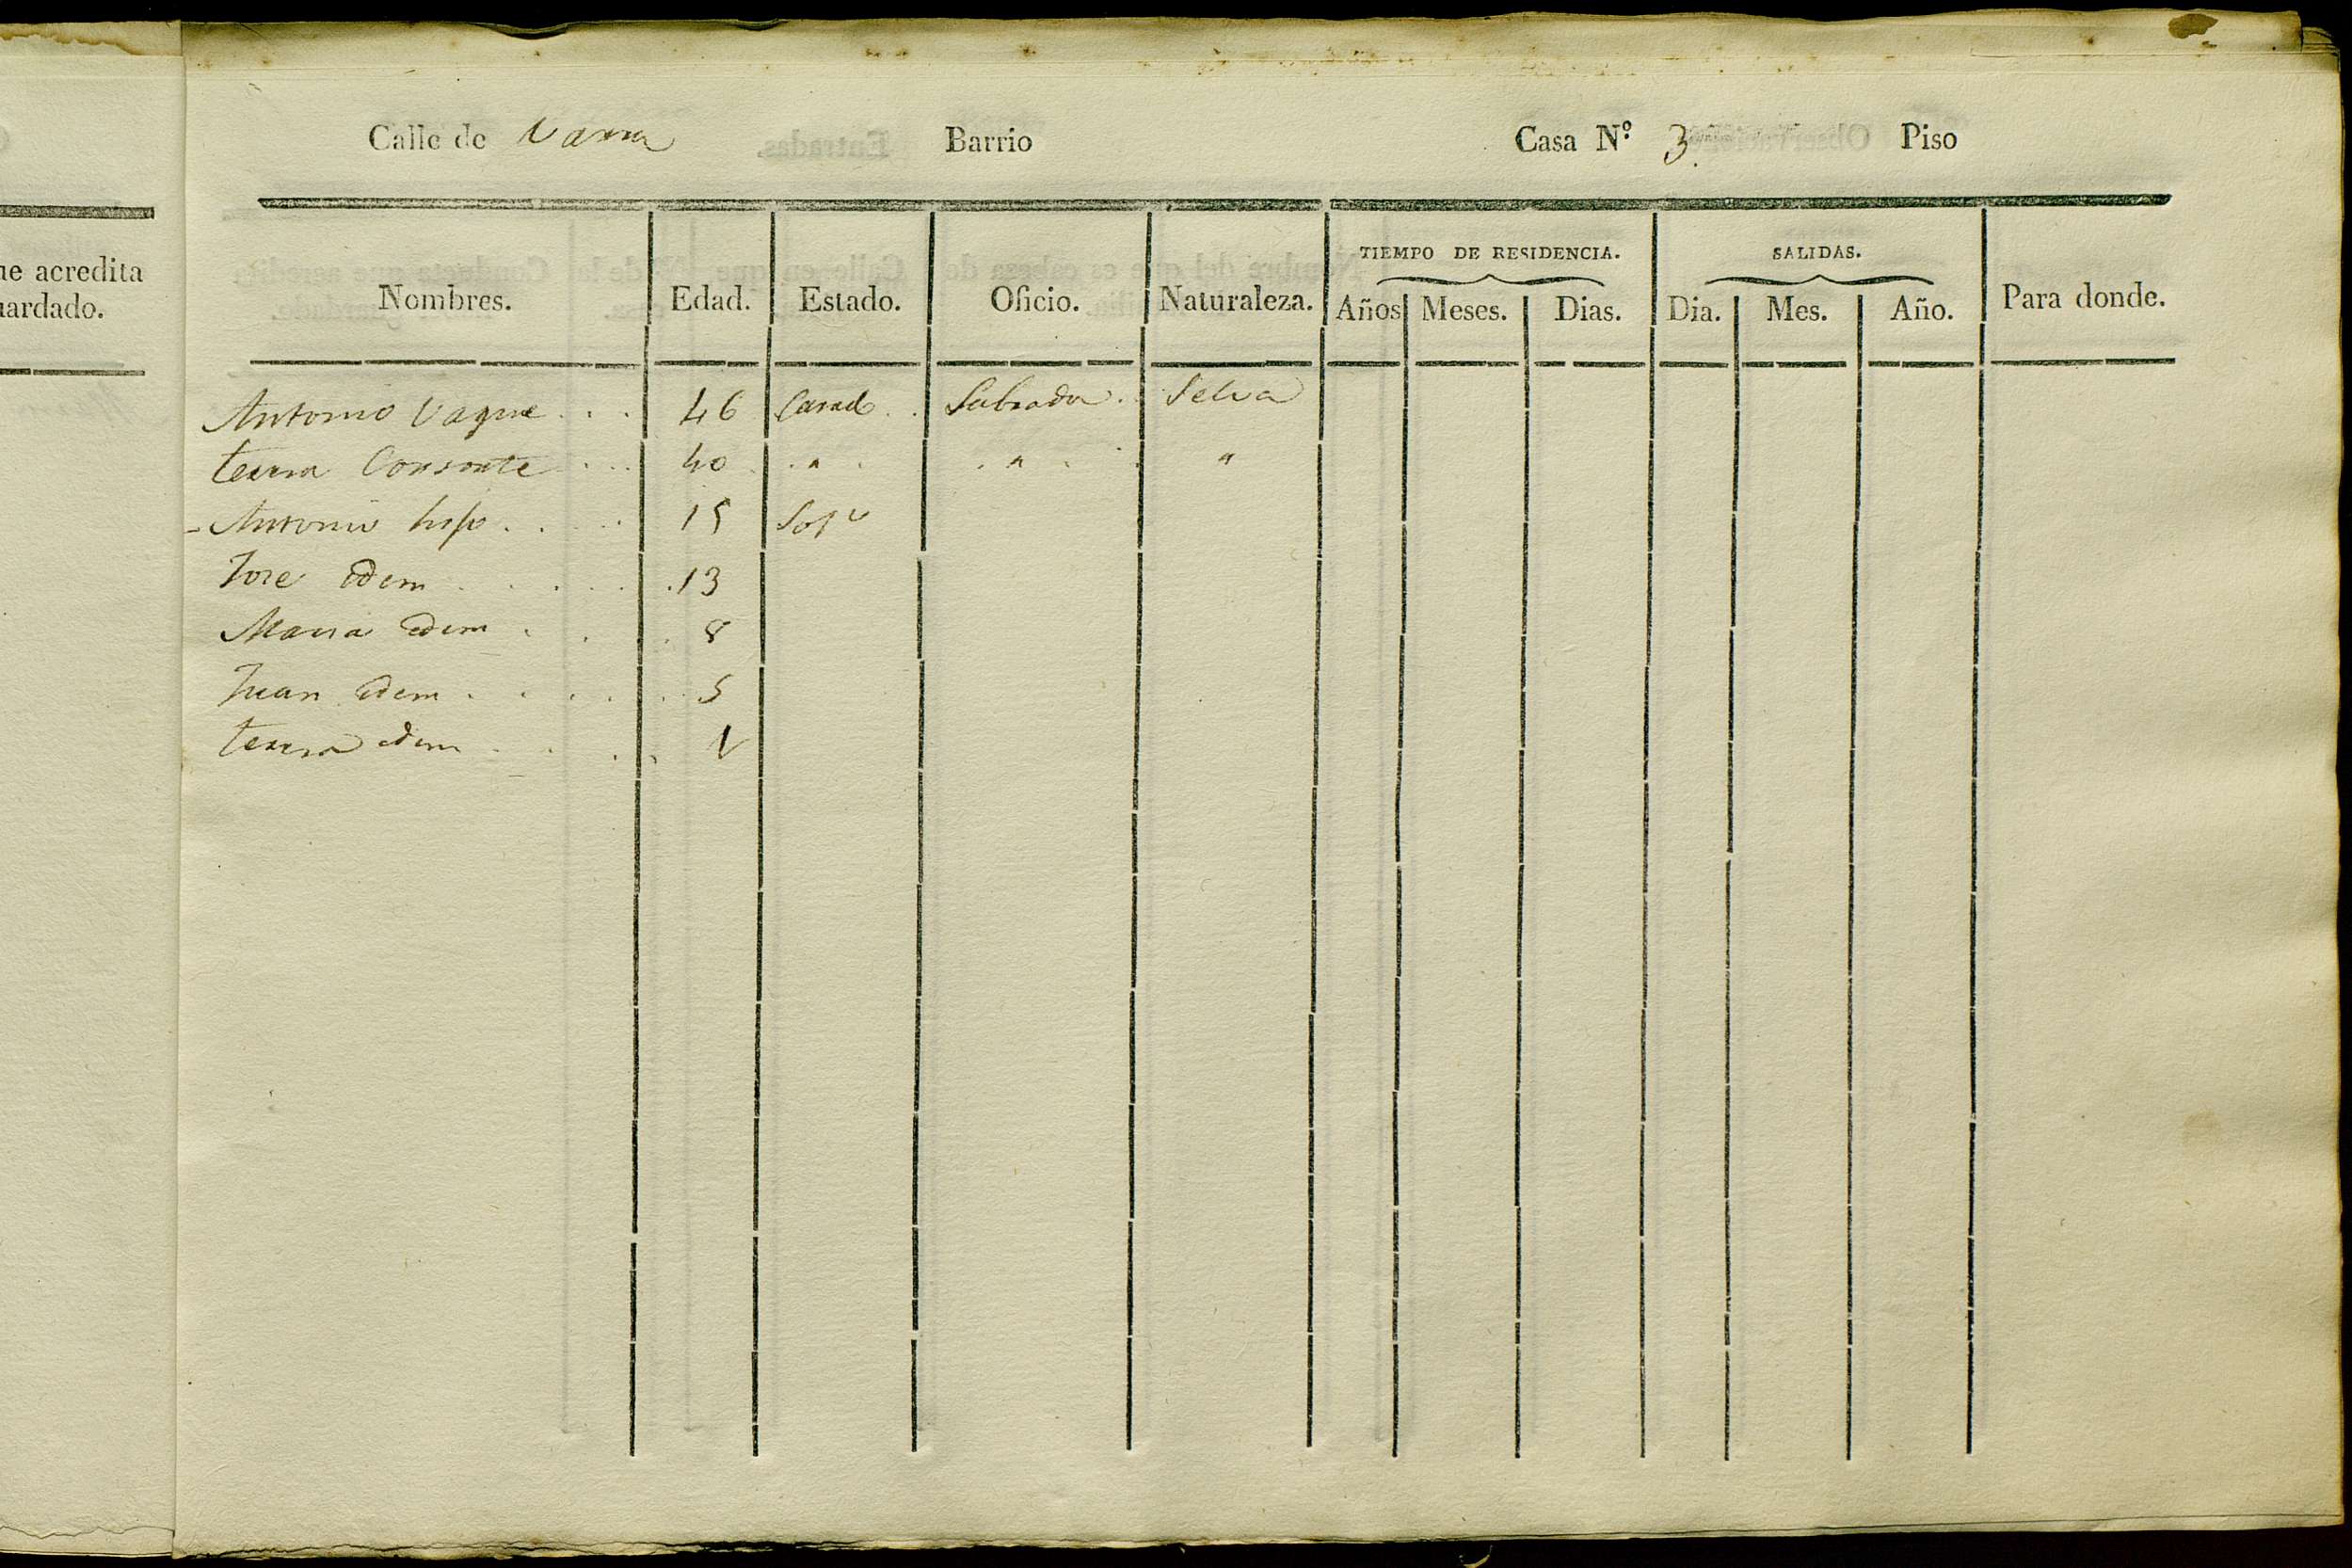 Calle de Barrio Casa N.º 3. Piso
ue acredita
uardado.
TIEMPO DE RESIDENCIA. SALIDAS.
Nombres. Edad. Estado. Oficio. Naturaleza. Años Meses. Dias. Dia. Mes. Año. Para donde.
Antonio Vaque 46 Casado Labrador Selva
Teresa Consorte 40 " " "
Antonio hijo 15 Solt.º
Jose idem 13
Maria idem 8
Juan idem 5
Teresa idem 1